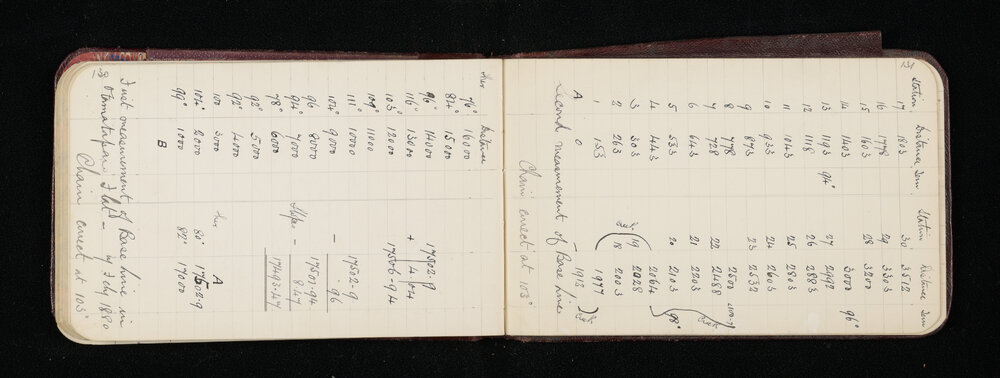 131
Station Distance Tem. Station Distance Tem
17 1803 30 3512
16 1778 29 3303
15 1603 28 3200
14 1403 3000 96°
13 1193 94° 27 2992
12 1118 26 2883
11 1043 25 2803
10 933 24 2603
9 873 23 2532
8 778 2500
7 728 22 2488
6 643 21 2203
5 533 20 2103 98°
4 443 2064
3 303 19 2028
2 263 18 2003
1 153 1977
A 0 — 1913
Second measurement of Base line
Chain correct at 103°
Ther Distance
76° 16000
84° 15000
96° 14000 17502.9
116° 13000 + 4.04
103° 12000 17506.94
109 11000
111° 10000 17502.9
104° 9000 — .96
96 8000 17501.94
94° 7000 Slope — 8.47
78° 6000 17493.47
92° 5000
92° 4000
100 3000 Ther A
104° 2000 80° 17502.9
99° 1000 82° 17000
B
First measurement of Base line in
Flat — July 1880
Chain correct at 103°